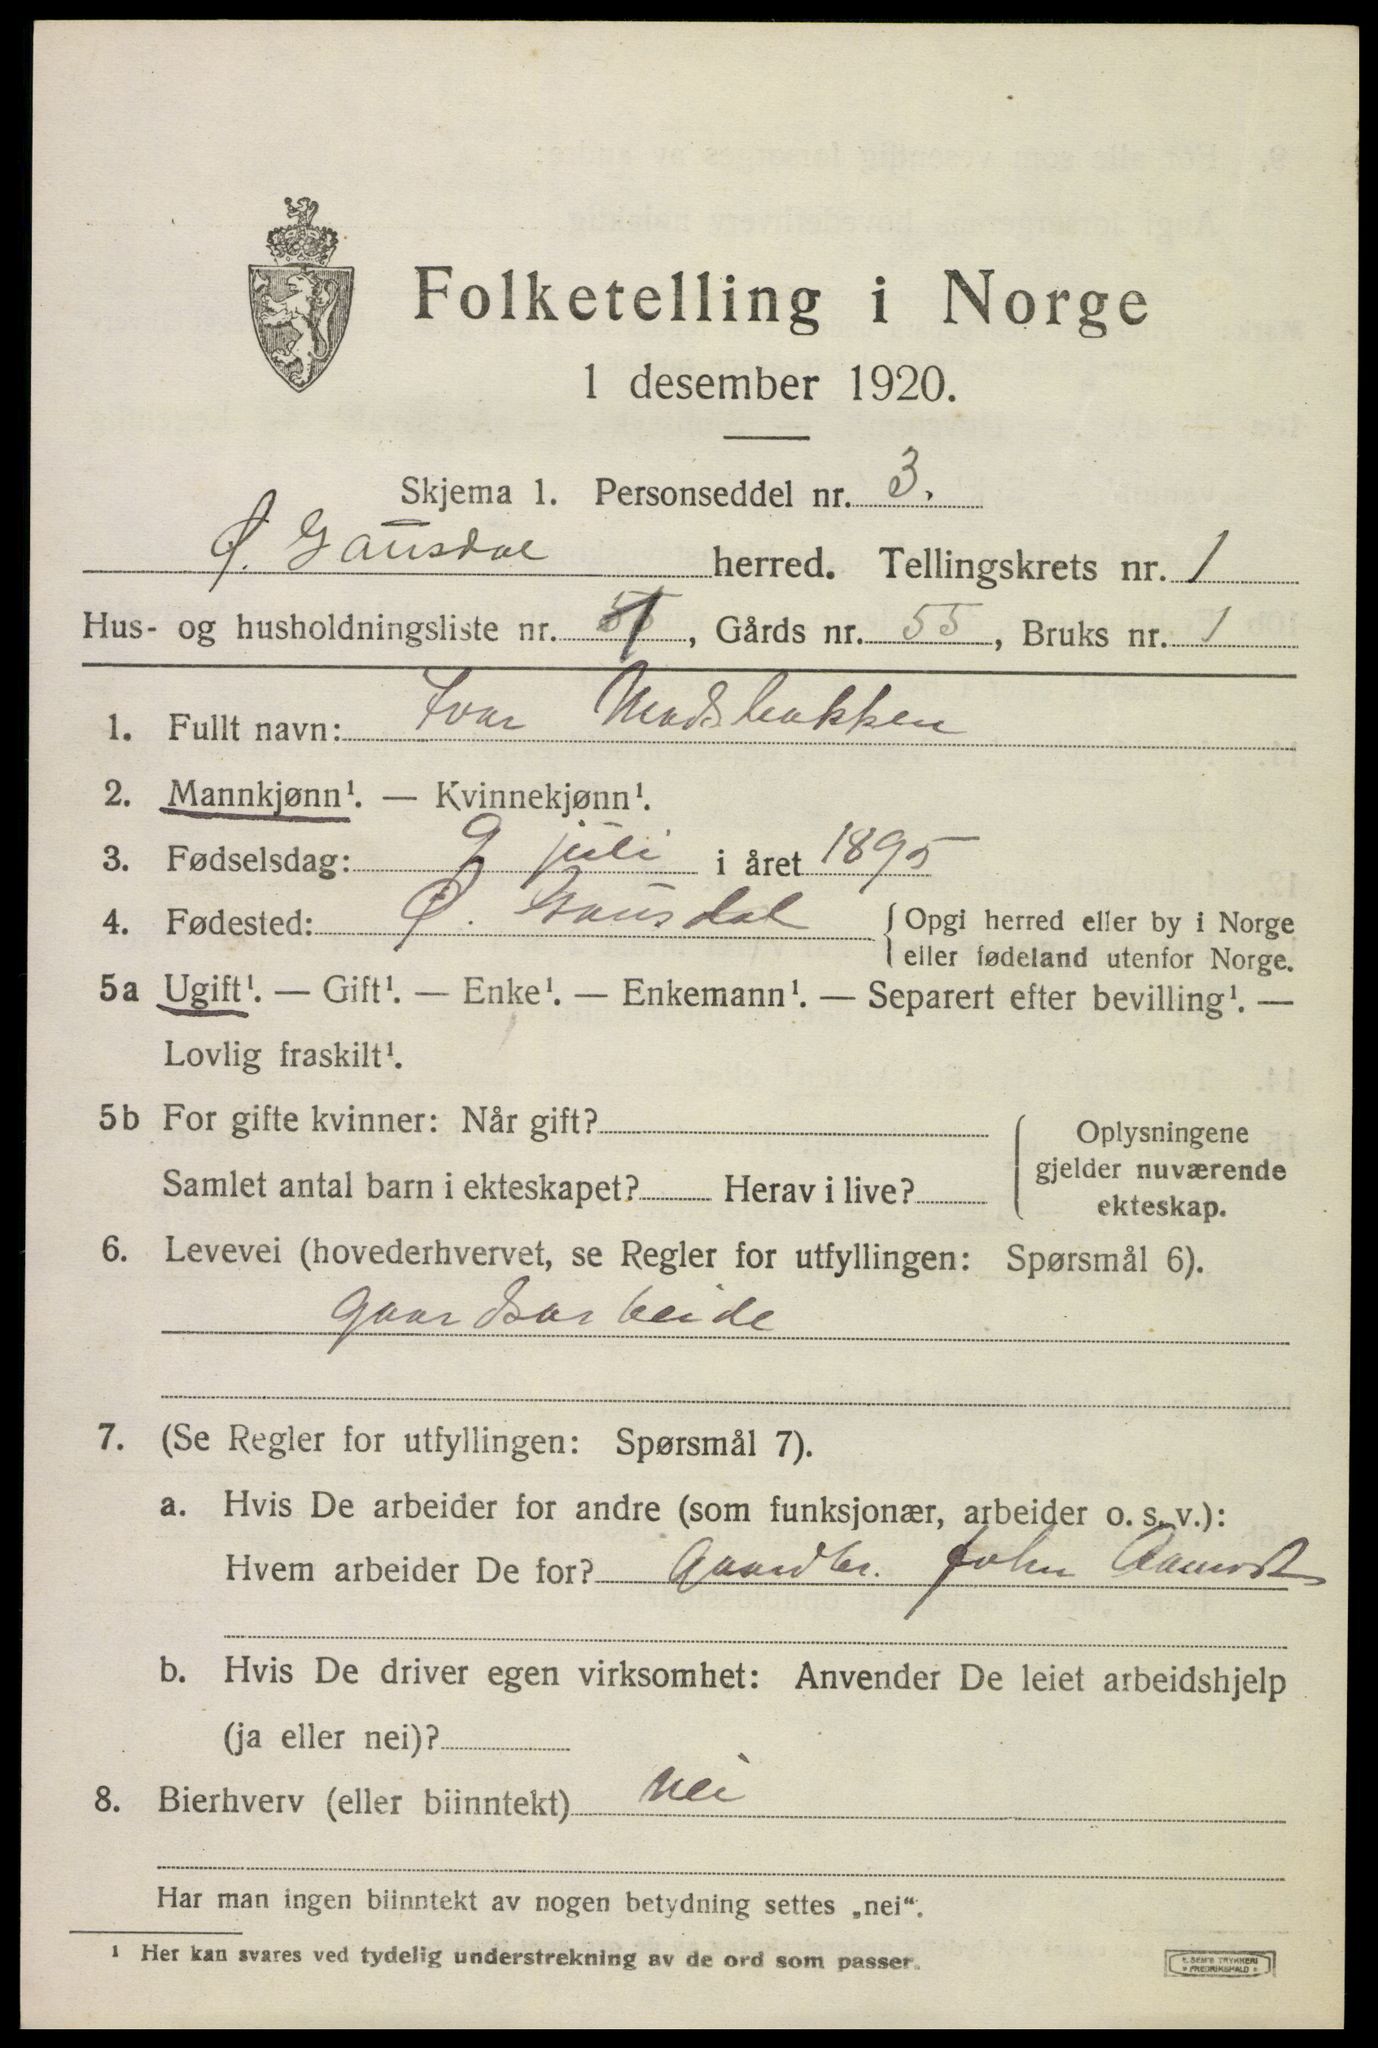 Folketelling i Norge
1 desember 1920.
Skjema 1. Personseddel nr. 3.
Ø. Gausdal herred. Tellingskrets nr. 1
Hus- og husholdningsliste nr. 1, Gårds nr. 55, Bruks nr. 1
1. Fullt navn: Ivar Madsbakken
2. Mannkjønn¹. — Kvinnekjønn¹.
3. Fødselsdag: 9 juli i året 1895
4. Fødested: Ø. Gausdal { Opgi herred eller by i Norge
eller fødeland utenfor Norge.
5a Ugift¹. — Gift¹. — Enke¹. — Enkemann¹. — Separert efter bevilling¹. —
Lovlig fraskilt¹.
5b For gifte kvinner: Når gift?
Samlet antal barn i ekteskapet? Herav i live?
Oplysningene
gjelder nuværende
ekteskap.
6. Levevei (hovederhvervet, se Regler for utfyllingen: Spørsmål 6).
gaardsarbeide
7. (Se Regler for utfyllingen: Spørsmål 7).
a. Hvis De arbeider for andre (som funksjonær, arbeider o. s. v.):
Hvem arbeider De for? Gaardbr. John
b. Hvis De driver egen virksomhet: Anvender De leiet arbeidshjelp
(ja eller nei)?
8. Bierhverv (eller biinntekt) nei
Har man ingen biinntekt av nogen betydning settes „nei“.
¹ Her kan svares ved tydelig understrekning av de ord som passer.
E. SEM'S TRYKKERI
* FREDRIKSHALD *